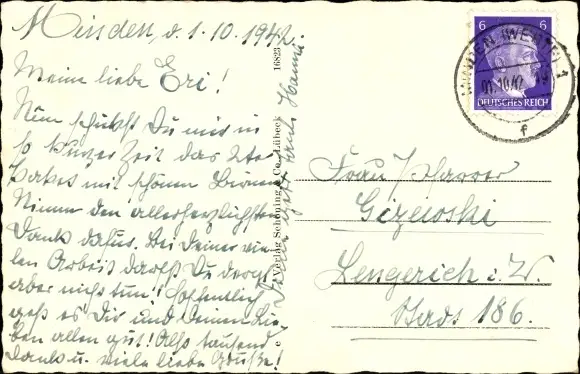 Minden, d. 1.10.1942.
Meine liebe Eri!
Nun schickst Du mir in
so kurzer Zeit das 2te
Paket mit schönen Birnen
Nimm den allerherzlichsten
Dank dafür. Bei Deiner vie-
len Arbeit darfst Du doch
aber nicht tun! Hoffentlich
geht es Dir und Deinen Lie-
ben allen gut! Also tausend
Dank u. viele liebe Grüße!
Hanni
Verlag Schöning & Co., Lübeck
16823
6 6
DEUTSCHES REICH
MINDEN (WESTF) 1
01.10.42
f
Frau Pfarrer
Gizewski
Lengerich i. W.
Stads 186.